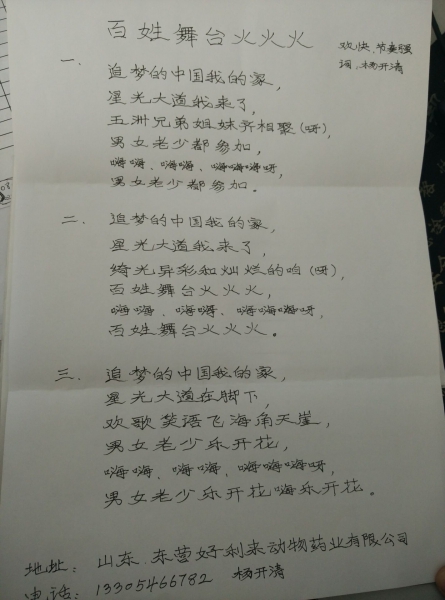 百姓舞台火火火
欢快、节奏强
词，杨开清
一．
追梦的中国我的家，
星光大道我来了，
五洲兄弟姐妹齐相聚(呀)，
男女老少都参加，
嗨嗨、嗨嗨、嗨嗨嗨呀，
男女老少都参加。
二．追梦的中国我的家，
星光大道我来了，
绮光异彩和灿烂的咱(呀)，
百姓舞台火火火，
嗨嗨、嗨嗨、嗨嗨嗨呀，
百姓舞台火火火。
三．追梦的中国我的家，
星光大道在脚下，
欢歌笑语飞海角天崖，
男女老少乐开花，
嗨嗨、嗨嗨、嗨嗨嗨呀，
男女老少乐开花嗨乐开花。
地址：山东．东营好利来动物药业有限公司
电话：13305466782 杨开清